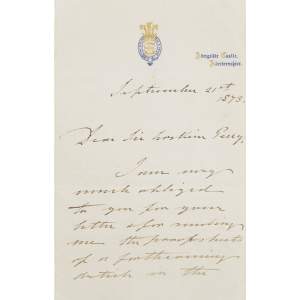 Abergeldie Castle,
Aberdeenshire.
September 21st
1873.
Dear Sir Erskine Perry,
I am very
much obliged
to you for your
letter & for sending
me the proof sheets
of a forthcoming
article in the